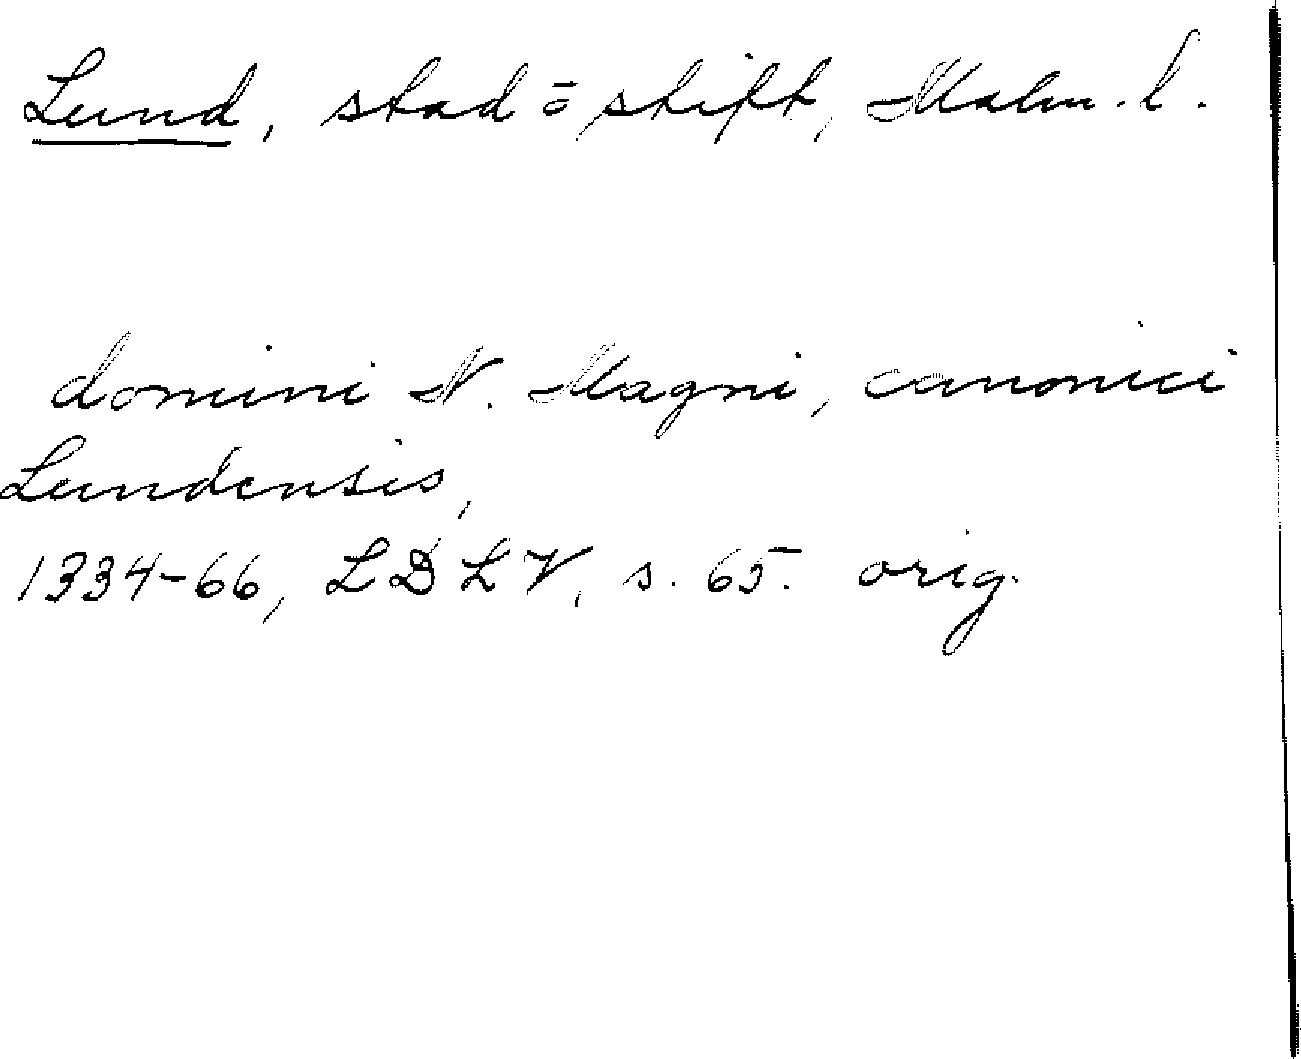 Lund, stad ō stift, Malm. l.
domini N. Magni, canonici
Lundensis,
1334-66, LDLV, s. 65. orig.